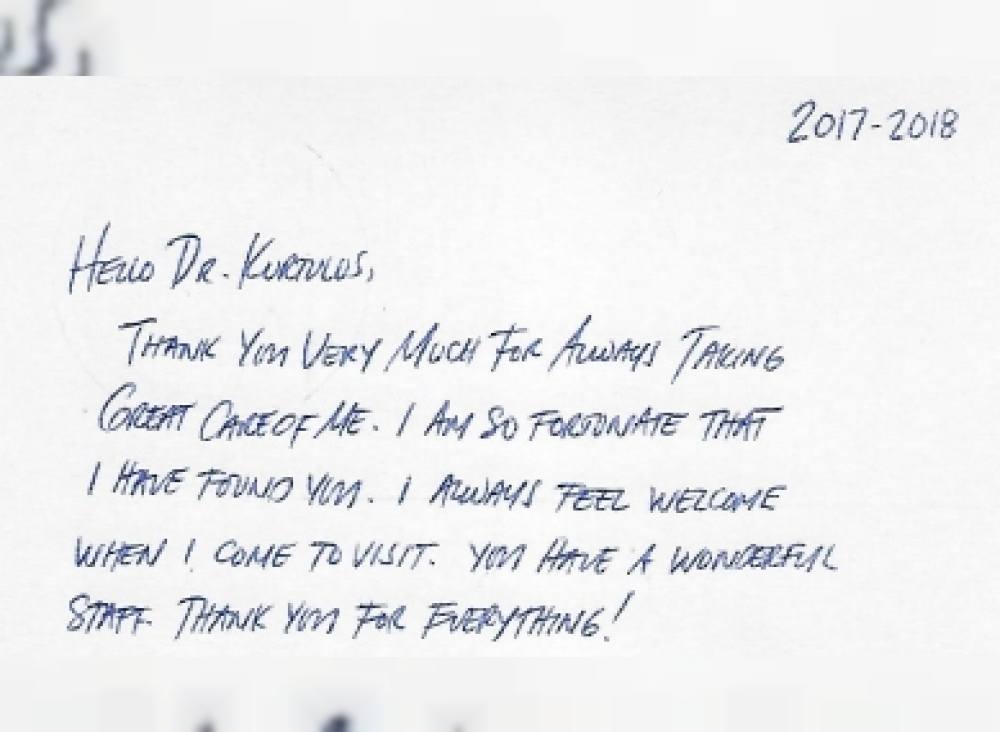 2017-2018
HELLO DR. KURTULUS,
THANK YOU VERY MUCH FOR ALWAYS TAKING
GREAT CARE OF ME. I AM SO FORTUNATE THAT
I HAVE FOUND YOU. I ALWAYS FEEL WELCOME
WHEN I COME TO VISIT. YOU HAVE A WONDERFUL
STAFF. THANK YOU FOR EVERYTHING!